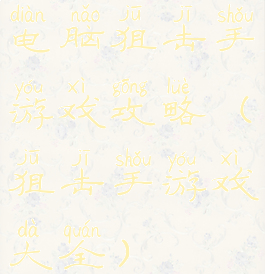 diàn nǎo jū jī shǒu
电脑狙击手
yóu xì gōng lüè
游戏攻略（
jū jī shǒu yóu xì
狙击手游戏
dà quán
大全）